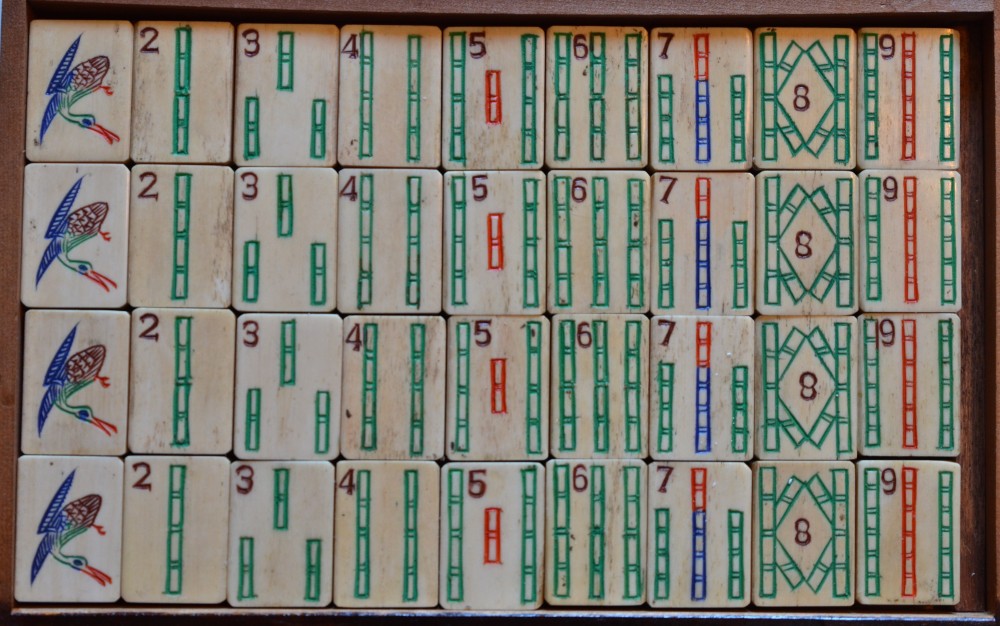 2 3 4 5 6 7 8 9
2 3 4 5 6 7 8 9
2 3 4 5 6 7 8 9
2 3 4 5 6 7 8 9